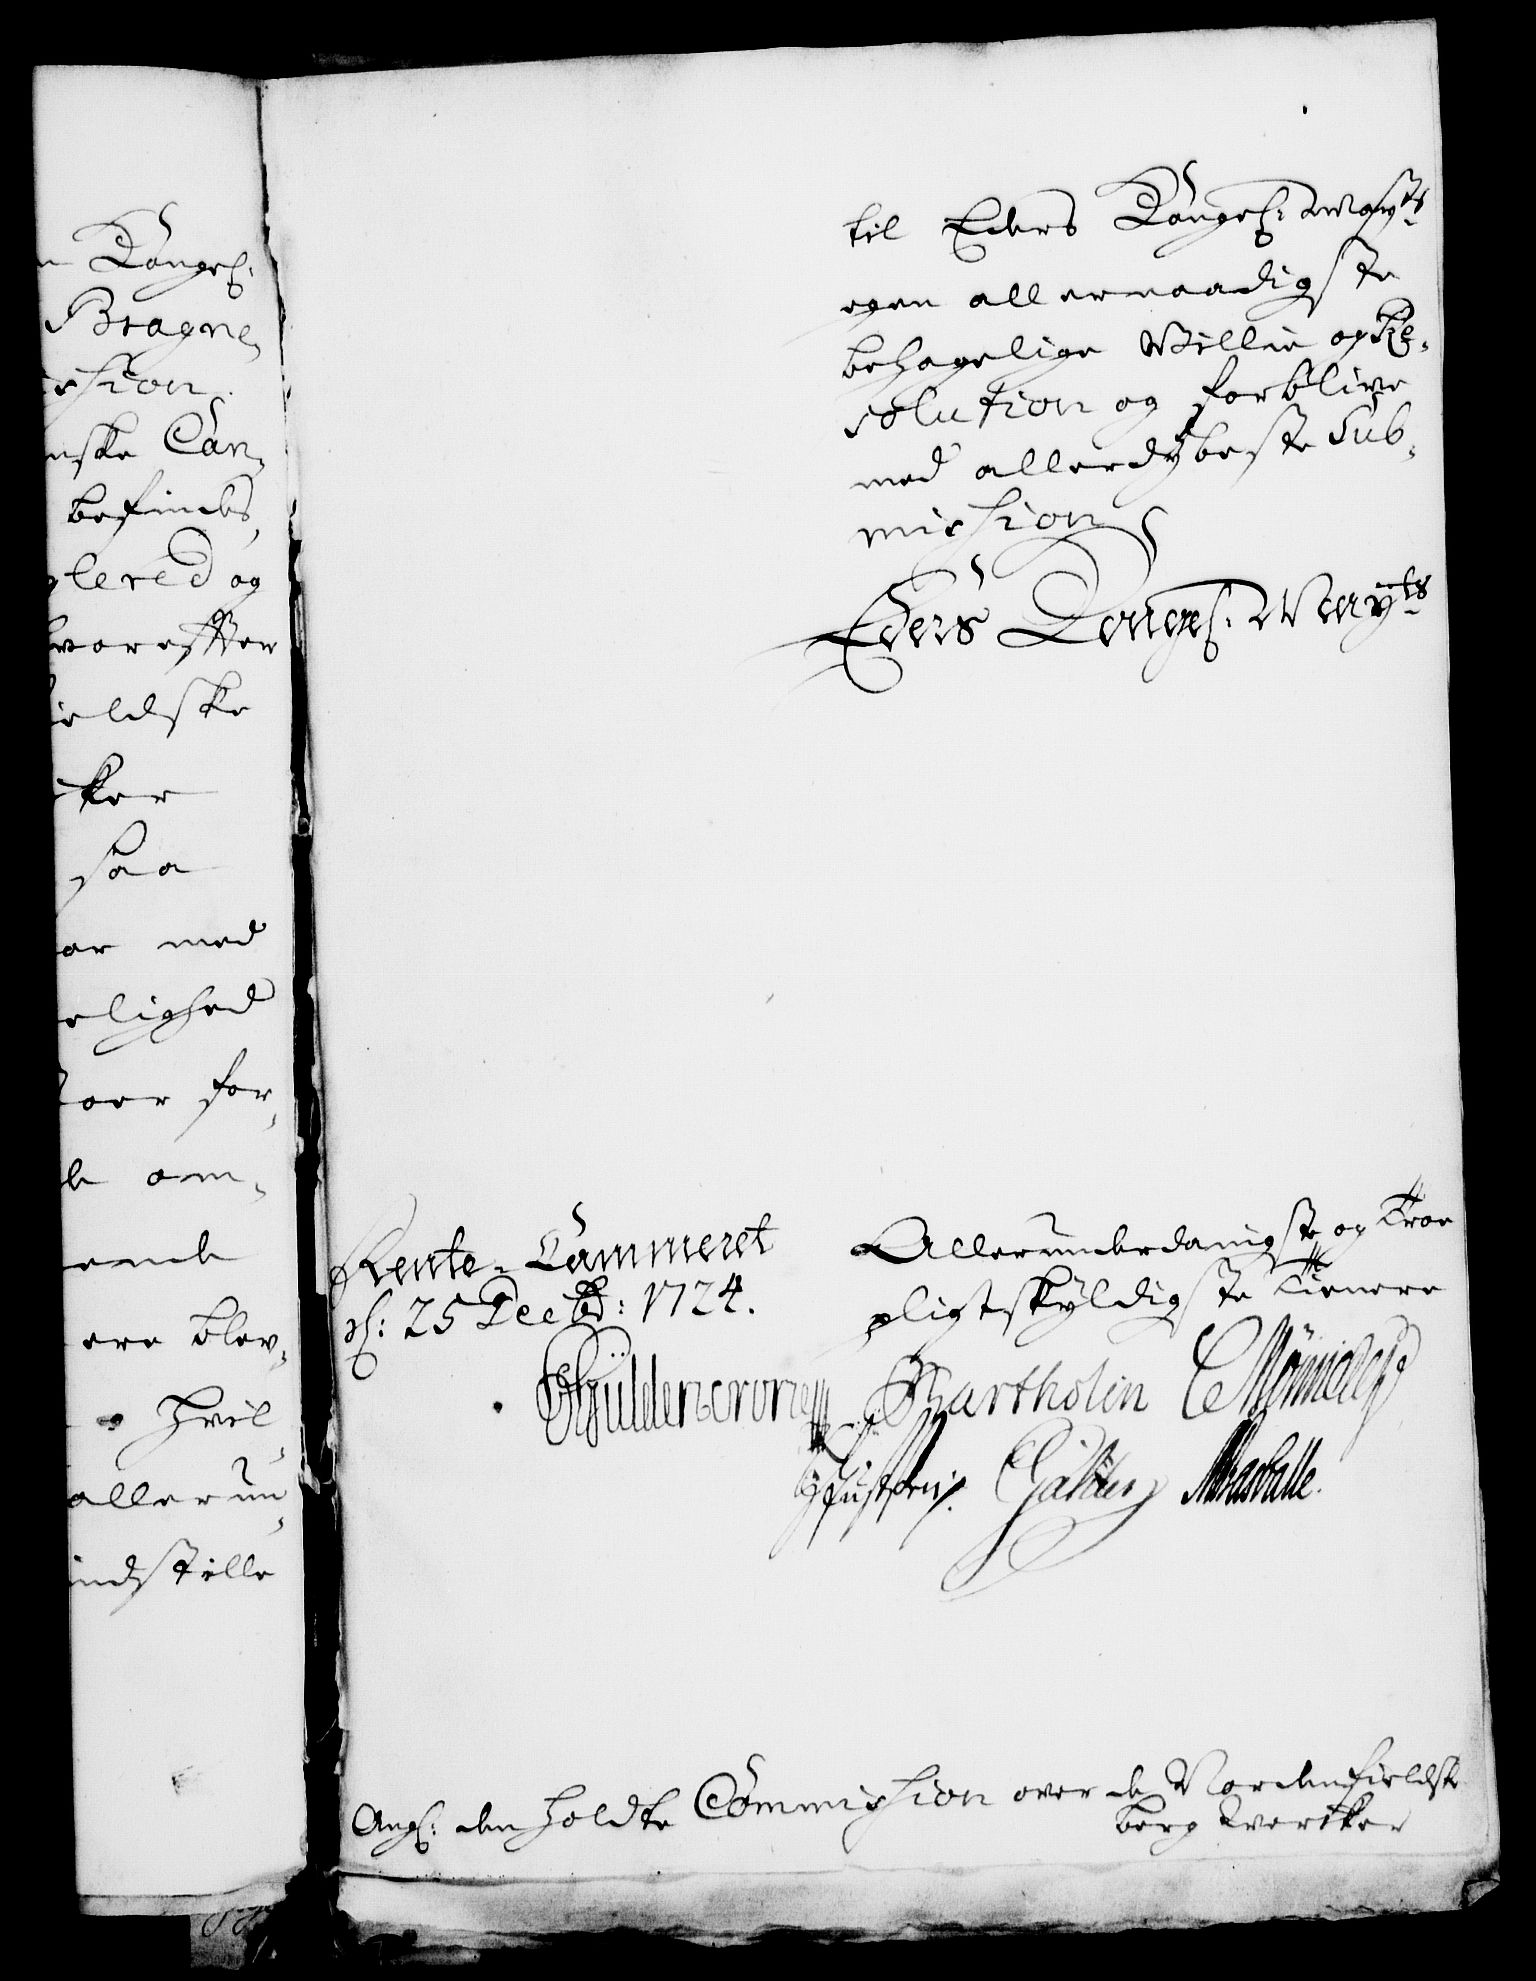 n Kongel:
Bragne,
ission.
nske Can,
befindes,
lered og
vorefter
ieldske
ker
saa
or med
elighed
for,
le om,
ende
ere blev,
hvil,
allerun,
indstille
til Eders Kongel: Mayts
egen allernaadigste
behagelige Villie og Re,
solution og forblive
med allerdybeste Sub,
mission
Eders Kongel: Mayts
Rente-Cammeret
d: 25 Decbr: 1724.
Allerunderdanigste og Troe
pligtskyldigste Tienere
Güldencrone
Bartholin
Angl: den holdte Commission over de Nordenfieldske
berg Wercker